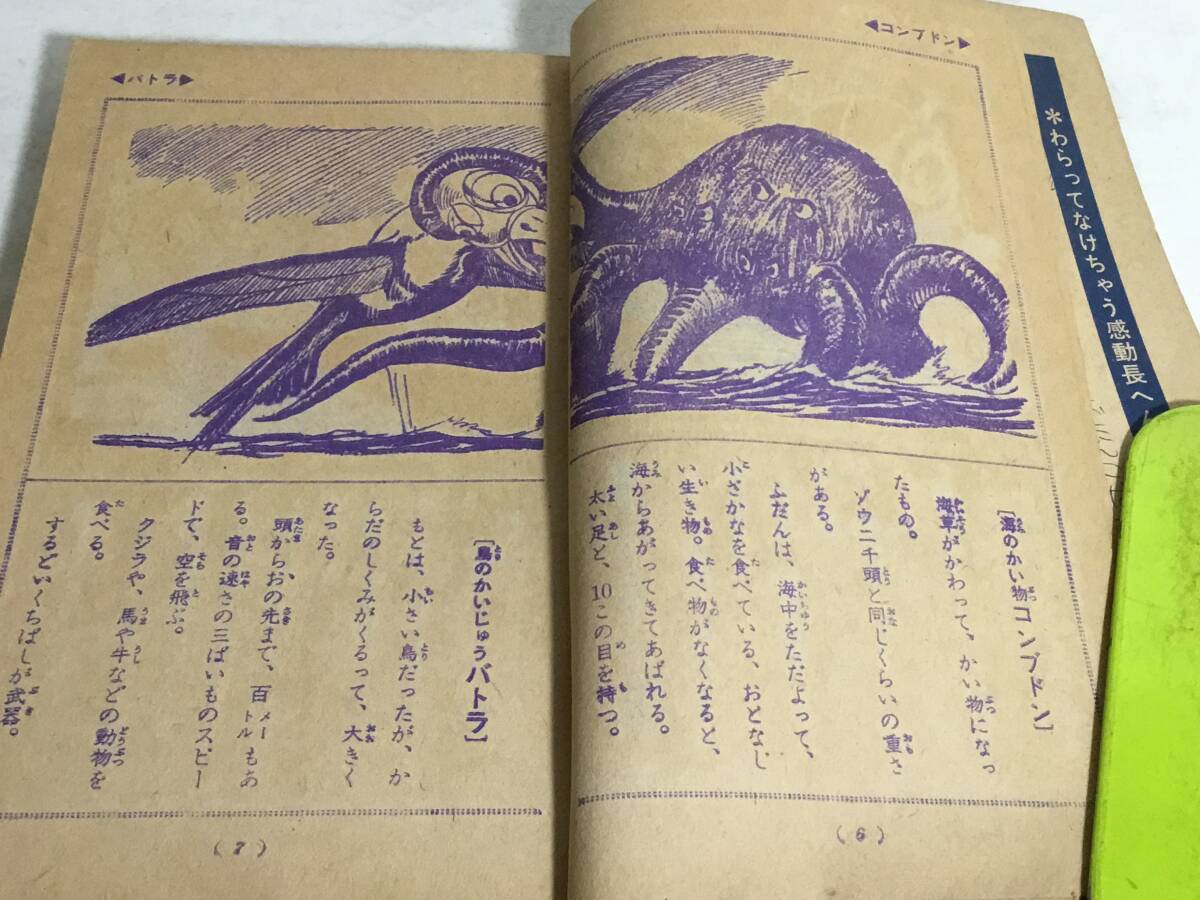 *わらってなけちゃう感動長へ
◀コンブドン▶
[海のかい物コンブドン]
海草がかわって、かい物になっ
たもの。
ゾウ二千頭と同じくらいの重さ
がある。
ふだんは、海中をただよって、
小ざかなを食べている、おとなし
い生き物。食べ物がなくなると、
海からあがってきてあばれる。
太い足と、10この目を持つ。
(6)
◀バトラ▶
[鳥のかいじゅうバトラ]
もとは、小さい鳥だったが、か
らだのしくみがくるって、大きく
なった。
頭からおの先まで、百メートルもあ
る。音の速さの三ばいものスピー
ドで、空を飛ぶ。
クジラや、馬や牛などの動物を
食べる。
するどいくちばしが武器。
(7)